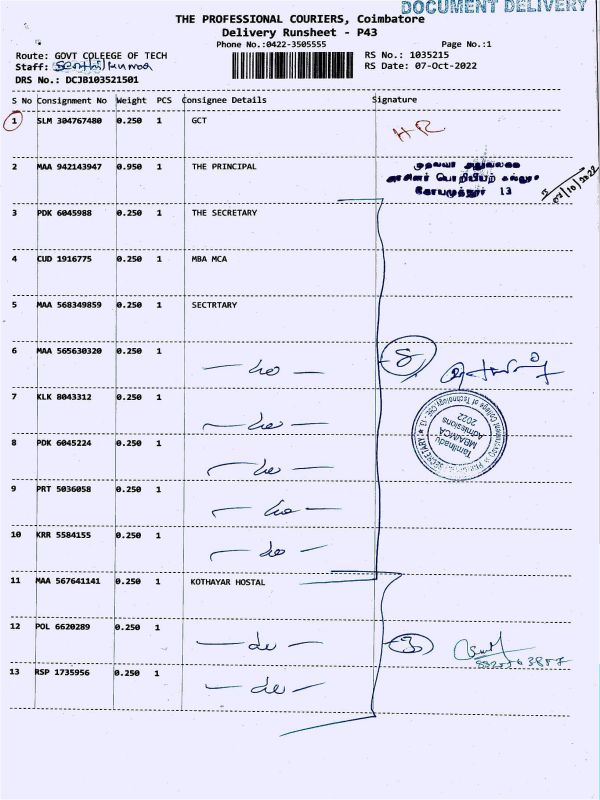 DOCUMENT DELIVERY
THE PROFESSIONAL COURIERS, Coimbatore
Delivery Runsheet - P43
Phone No.:0422-3505555
Page No.:1
Route: GOVT COLEEGE OF TECH
RS No.: 1035215
Staff:
RS Date: 07-Oct-2022
DRS No.: DCJB103521501
S No Consignment No Weight PCS Consignee Details Signature
1 SLM 304767480 0.250 1 GCT
HR
2 MAA 942143947 0.950 1 THE PRINCIPAL
13
07/10/2022
3 PDK 6045988 0.250 1 THE SECRETARY
4 CUD 1916775 0.250 1 MBA MCA
5 MAA 568349859 0.250 1 SECTRTARY
6 MAA 565630320 0.250 1
8
7 KLK 8043312 0.250 1
Tamilnadu
MBA/MCA
Admissions
2022
8 PDK 6045224 0.250 1
9 PRT 5036058 0.250 1
10 KRR 5584155 0.250 1
11 MAA 567641141 0.250 1 KOTHAYAR HOSTAL
12 POL 6620289 0.250 1
3
13 RSP 1735956 0.250 1